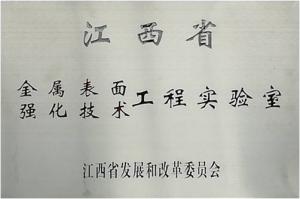 江西省
金属表面
强化技术工程实验室
江西省发展和改革委员会